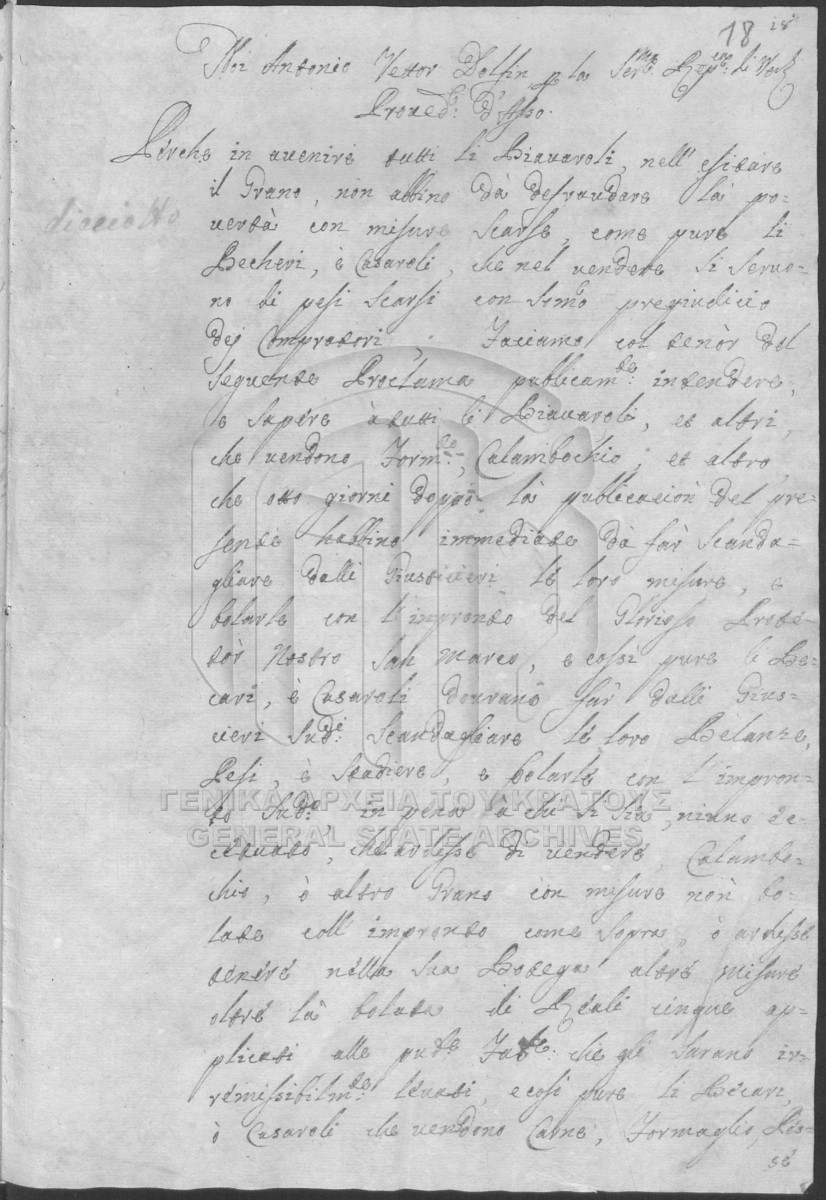 18 18
Noi Antonio Vettor Dolfin p la Ser.ma Rep.ca di Ven.a
Proved.r d'Asso.
Perche in avenire tutti li Biavaroli, nell' esitare
il Grano, non abbino dà defraudare là po-
vertà con misure scarse, come pure li
Becheri, è Casaroli, che nel vendere si servo-
no di pesi scarsi con somo pregiudicio
dej Compratori; Facciamo col tenòr del
seguente Proclama publicam.te: intendere,
e sapere à tutti li Biavaroli, et altri,
che vendono Form.to, Calambochio, et altro,
che otto giorni doppò là publicacion del pre-
sente habbino immediate dà far scanda-
gliare dalli Giusticieri le loro misure, e
bolarle con l'impronto del Glorioso Prote-
tòr Nostro San Marco, e cossì pure li Be-
cari, è Casaroli dovrano far dalli Gius-
cieri sud.i scandagliare le loro Belanze,
Pesi, è Stadiere, e bolarle con l'impron-
to sud.o in pena à chi si sia, niuno ec-
cetuato, che ardisse di vendere, Calambo-
chio, ò altro Grano con misure non bo-
late coll impronto come sopra, ò ardisse
tenere nella sua Botega altre misure
oltre là bolata di Reali cinque ap-
plicati alle che gli sarano ir-
remissibilm.te levati, e così pure li Becari,
ò Casaroli che vendono Carne, Formaglio, Pes-
se
dieciotto
ΓΕΝΙΚΑ ΑΡΧΕΙΑ ΤΟΥ ΚΡΑΤΟΥΣ
GENERAL STATE ARCHIVES